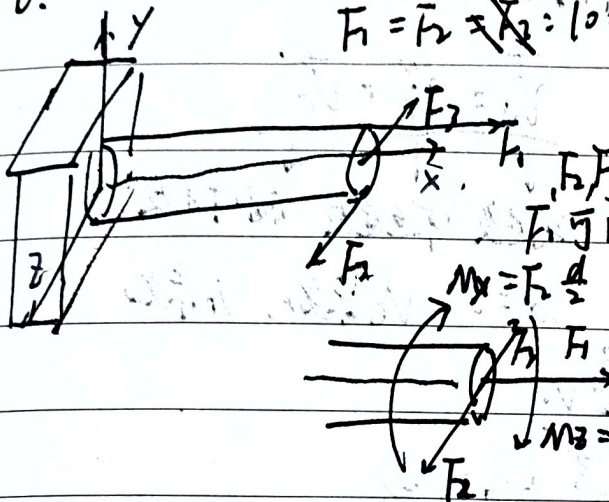 F₁ = F₂ = F₃ : 10
y
F₃
F₁
x
F₂
z
F₂
F₁ 与
Mx = F₂ d/2
F₁
Mz =
F₂